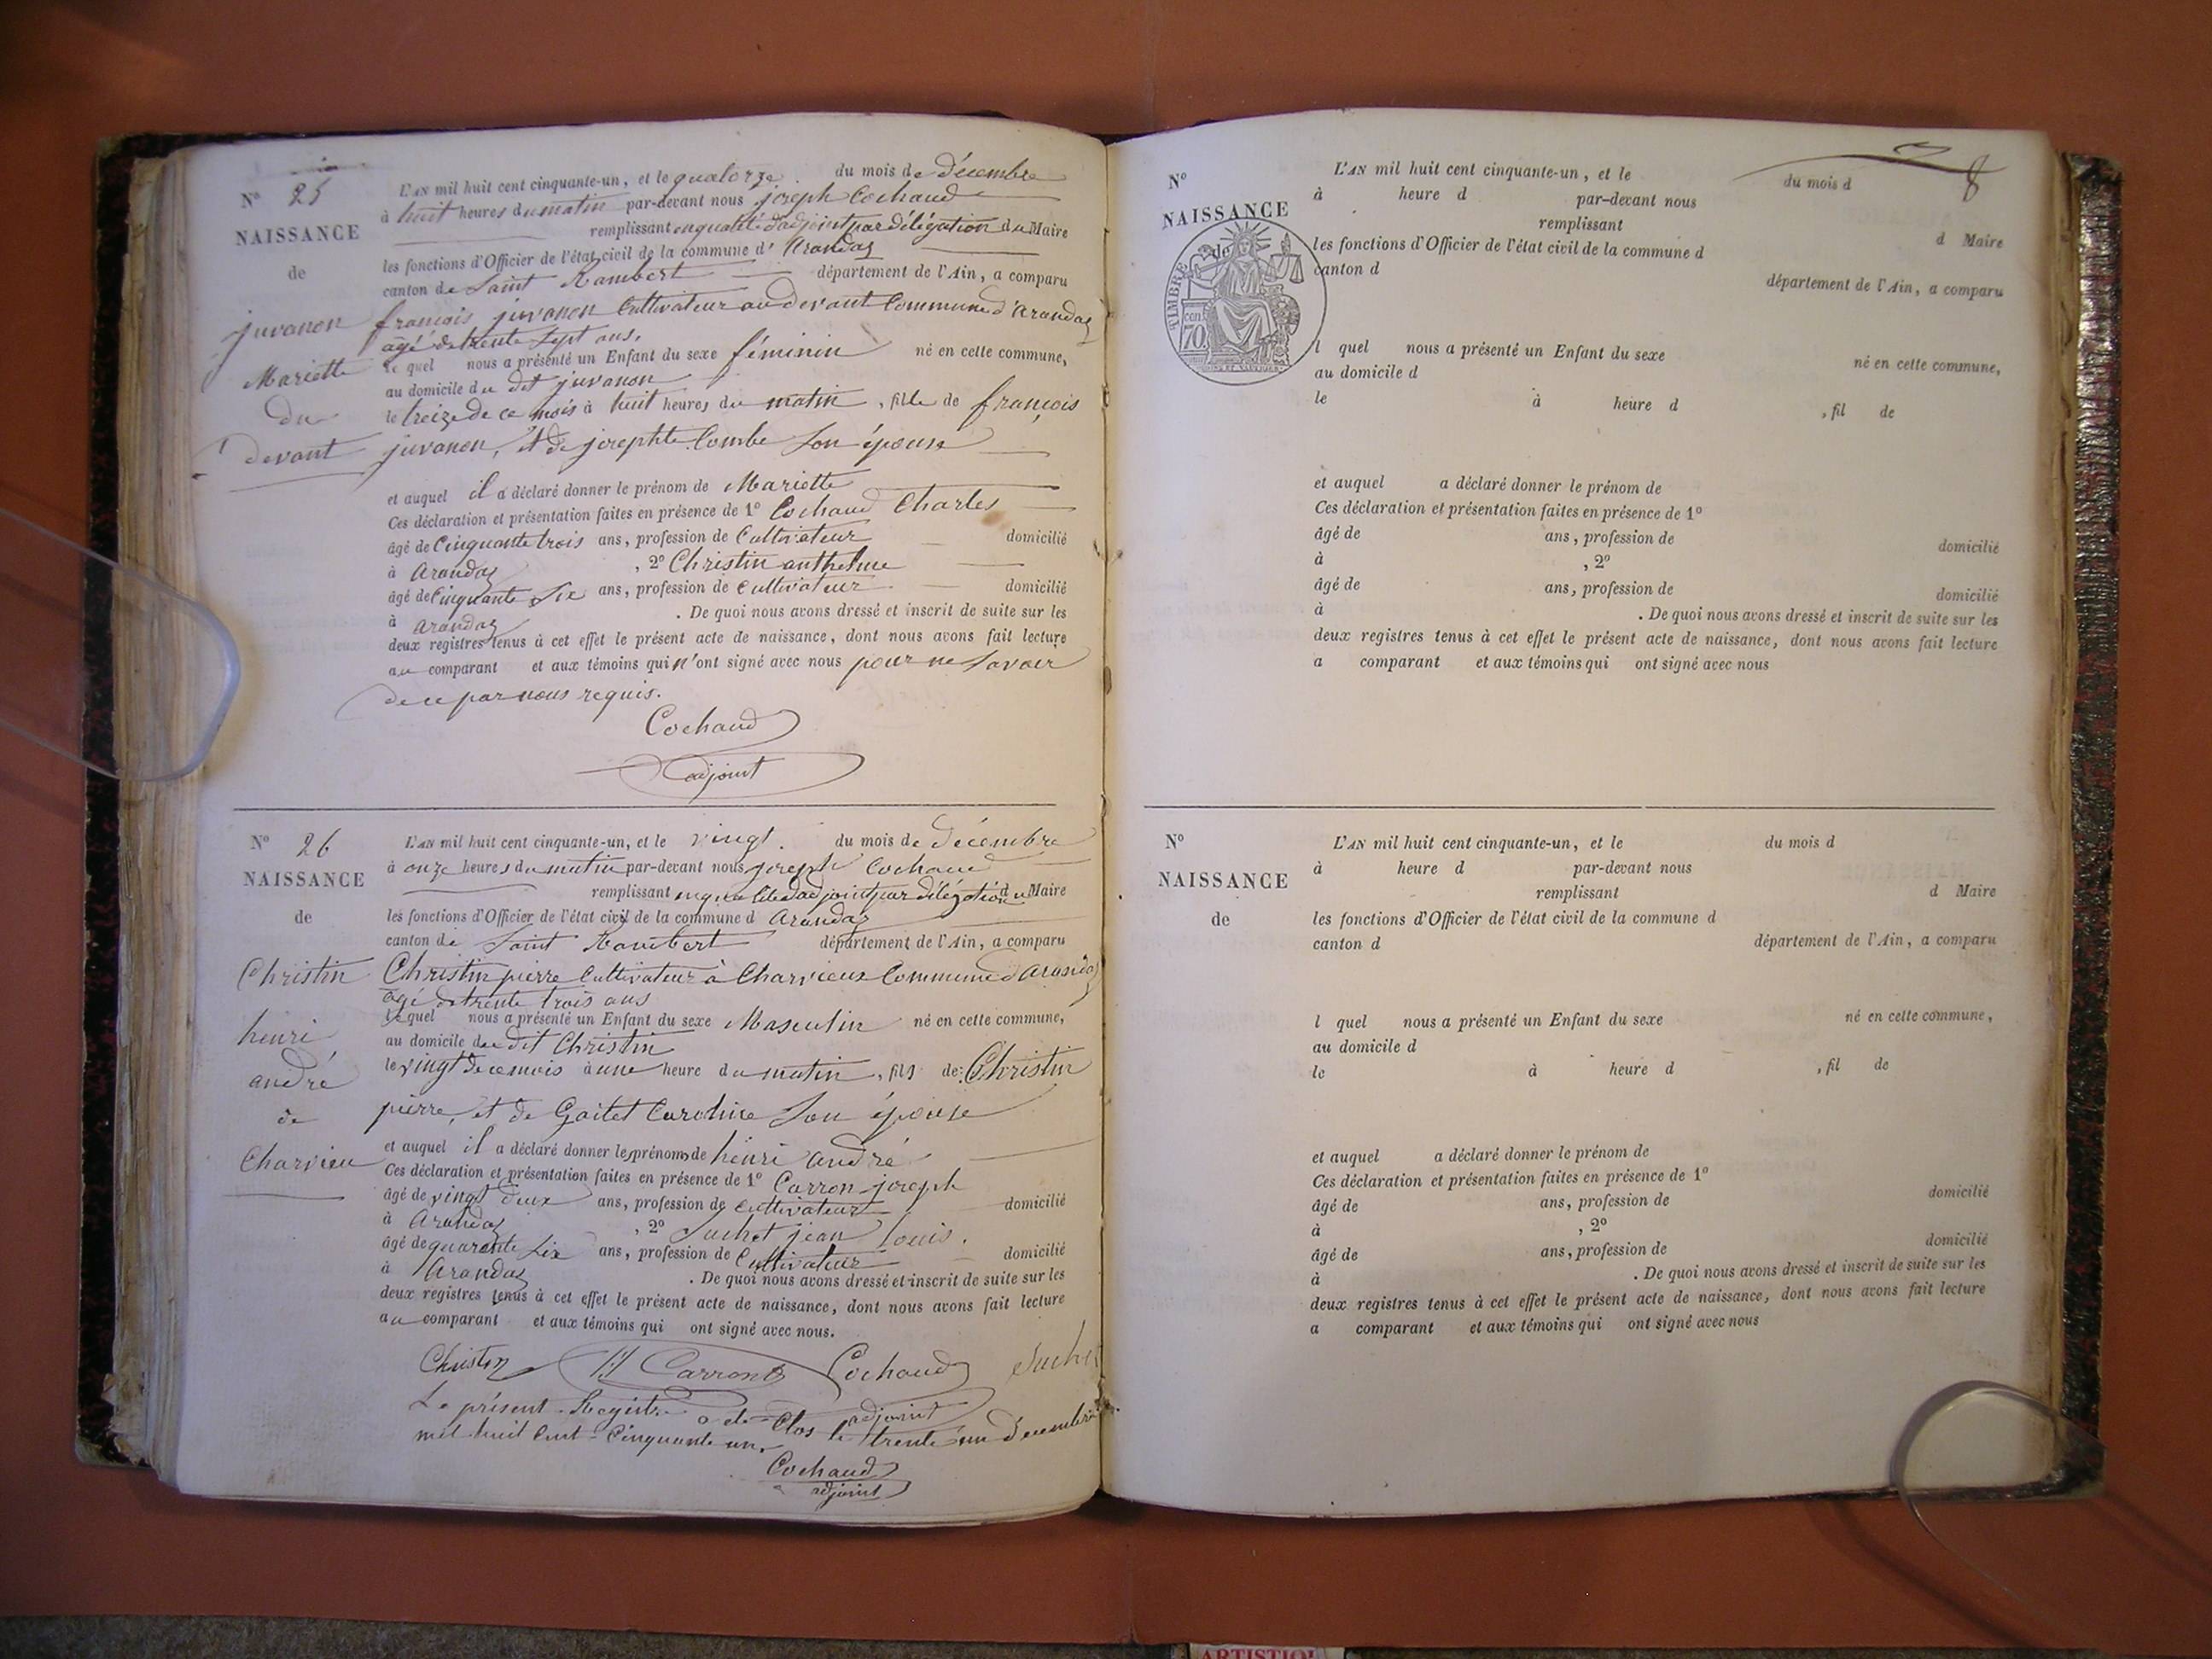 N° 25
NAISSANCE
de
juvanon
Mariette
du
devant
L'AN mil huit cent cinquante-un, et le quatorze du mois de décembre
à huit heures du matin par-devant nous joseph Cochaud
remplissant en qualité d'adjoint par délégation du Maire
les fonctions d'Officier de l'état civil de la commune d' Arandas
canton de Saint Rambert département de l'Ain, a comparu
françois juvanon Cultivateur au devant Commune d'arandas
âgé de trente sept ans,
le quel nous a présenté un Enfant du sexe féminin né en cette commune,
au domicile du dit juvanon
le treize de ce mois à huit heures du matin, fille de françois
juvanon, et de josephte Combe son épouse
et auquel il a déclaré donner le prénom de Mariette
Ces déclaration et présentation faites en présence de 1° Cochaud Charles
âgé de Cinquante trois ans, profession de Cultivateur domicilié
à Arandas, 2° Christin anthelme
âgé de Cinquante six ans, profession de Cultivateur domicilié
à arandas. De quoi nous avons dressé et inscrit de suite sur les
deux registres tenus à cet effet le présent acte de naissance, dont nous avons fait lecture
au comparant et aux témoins qui n'ont signé avec nous pour ne savoir
de ce par nous requis.
Cochaud
adjoint
N° 26
NAISSANCE
de
Christin
henri
andré
de
Charvieu
L'AN mil huit cent cinquante-un, et le vingt. du mois de décembre
à onze heures du matin par-devant nous joseph Cochaud
remplissant en qualité d'adjoint par délégation du Maire
les fonctions d'Officier de l'état civil de la commune d Arandas
canton de Saint Rambert département de l'Ain, a comparu
Christin pierre Cultivateur à Charvieux Commune d'arandas
âgé de trente trois ans
le quel nous a présenté un Enfant du sexe Masculin né en cette commune,
au domicile du dit Christin
le vingt de ce mois à une heure du matin, fils de: Christin
pierre, et de Gaitet Caroline son épouse
et auquel il a déclaré donner les prénoms de henri andré
Ces déclaration et présentation faites en présence de 1° Carron joseph
âgé de vingt deux ans, profession de cultivateur domicilié
à Arandas, 2° Suchet jean louis.
âgé de quarante six ans, profession de Cultivateur domicilié
à Arandas. De quoi nous avons dressé et inscrit de suite sur les
deux registres tenus à cet effet le présent acte de naissance, dont nous avons fait lecture
au comparant et aux témoins qui ont signé avec nous.
Christin Carron Cochaud Suchet
adjoint
Le présent Registre a été Clos le trente un Décembre
mil huit Cent Cinquante un.
Cochaud
adjoint
8
N°
NAISSANCE
de
TIMBRE
70 cen
L'AN mil huit cent cinquante-un, et le du mois d
à heure d par-devant nous
remplissant d Maire
les fonctions d'Officier de l'état civil de la commune d
canton d département de l'Ain, a comparu
l quel nous a présenté un Enfant du sexe né en cette commune,
au domicile d
le à heure d , fil de
et auquel a déclaré donner le prénom de
Ces déclaration et présentation faites en présence de 1°
âgé de ans, profession de domicilié
à , 2°
âgé de ans, profession de domicilié
à . De quoi nous avons dressé et inscrit de suite sur les
deux registres tenus à cet effet le présent acte de naissance, dont nous avons fait lecture
a comparant et aux témoins qui ont signé avec nous
N°
NAISSANCE
de
L'AN mil huit cent cinquante-un, et le du mois d
à heure d par-devant nous
remplissant d Maire
les fonctions d'Officier de l'état civil de la commune d
canton d département de l'Ain, a comparu
l quel nous a présenté un Enfant du sexe né en cette commune,
au domicile d
le à heure d , fil de
et auquel a déclaré donner le prénom de
Ces déclaration et présentation faites en présence de 1°
âgé de ans, profession de domicilié
à , 2°
âgé de ans, profession de domicilié
à . De quoi nous avons dressé et inscrit de suite sur les
deux registres tenus à cet effet le présent acte de naissance, dont nous avons fait lecture
a comparant et aux témoins qui ont signé avec nous